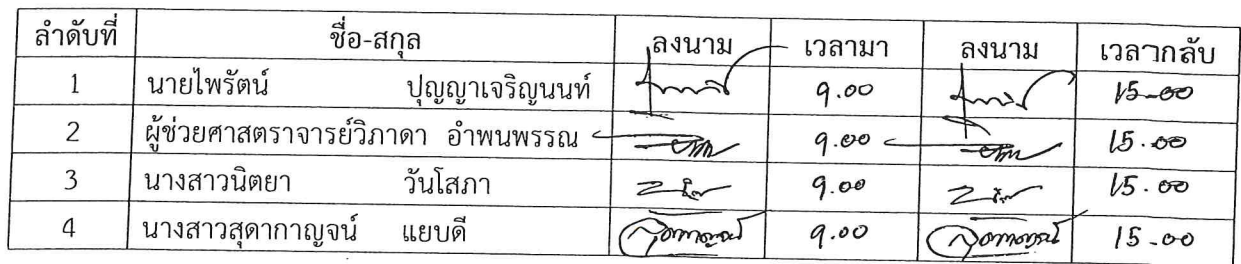 ลำดับที่ ชื่อ-สกุล ลงนาม เวลามา ลงนาม เวลากลับ
1 นายไพรัตน์ ปุญญาเจริญนนท์ 9.00 15-00
2 ผู้ช่วยศาสตราจารย์วิภาดา อำพนพรรณ 9.00 15.00
3 นางสาวนิตยา วันโสภา 9.00 15.00
4 นางสาวสุดากาญจน์ แยบดี สุดากาญจน์ 9.00 สุดากาญจน์ 15-00